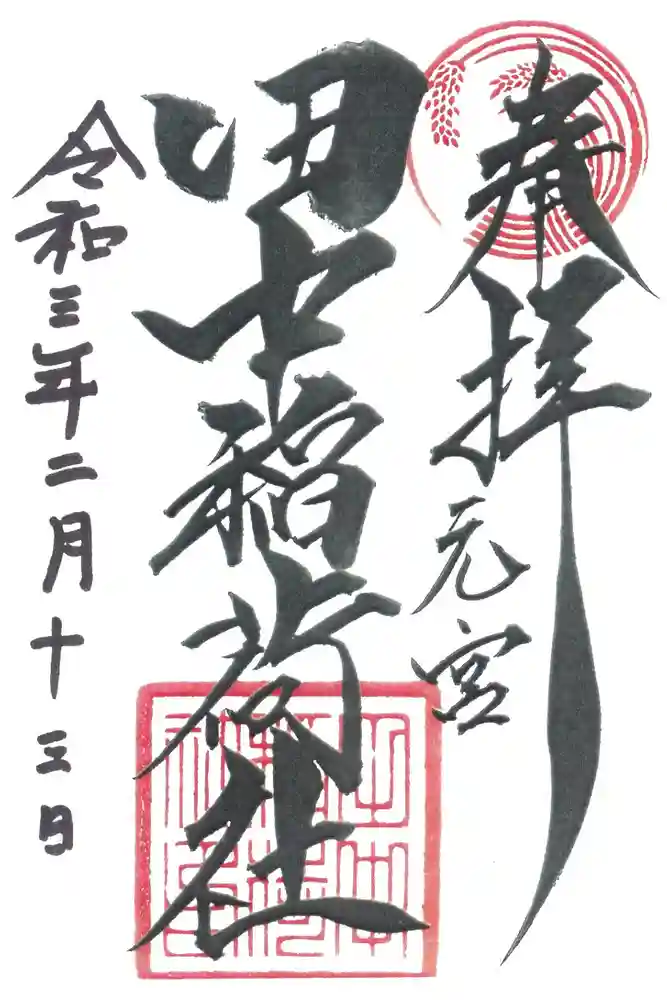 奉拝
元宮
田中稲荷社
令和三年二月十三日